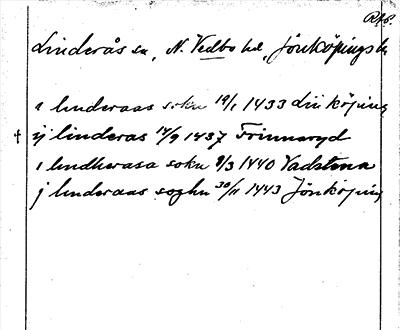 RAp.
Linderås sn, N. Vedbo hd, Jönköpings l.
i linderaas sokn 19/1 1433 Linköping
+ ij linderas 14/9 1437 Frinnaryd
i lindherasa sokn 8/3 1440 Vadstena
j linderaas soghn 30/11 1443 Jönköping